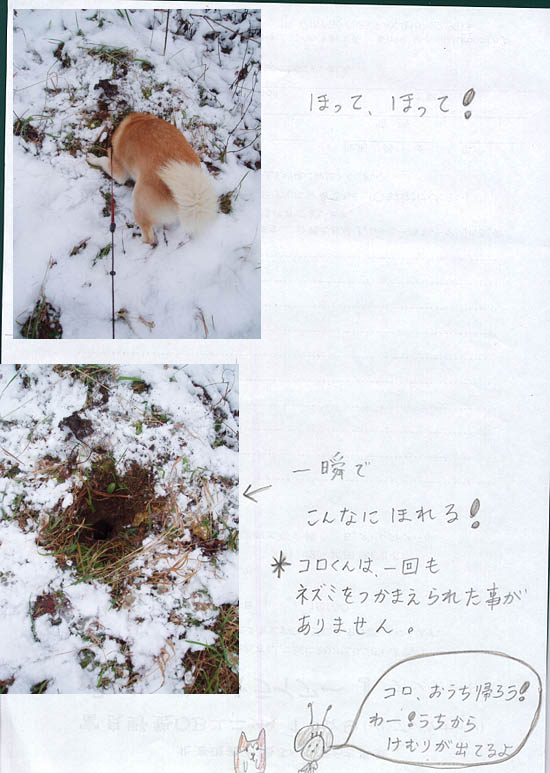 ほって、ほって!
一瞬で
こんなに ほれる!
* コロくんは、一回も
ネズミをつかまえられた事が
ありません。
コロ、おうち帰ろう!
わー!うちから
けむりが出てるよ